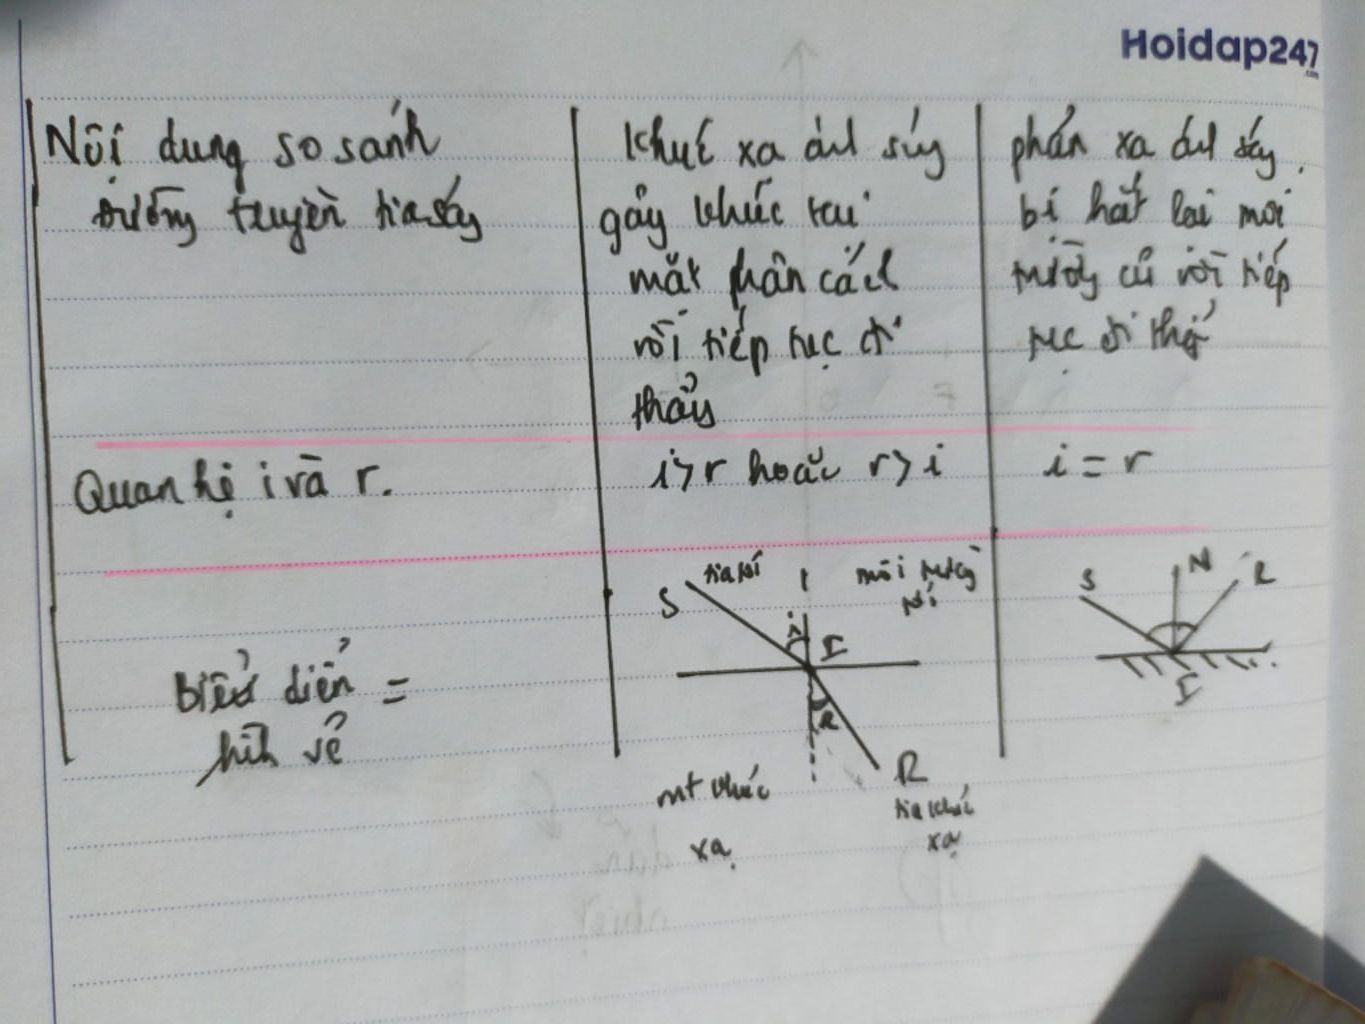 Hoidap247
.com
Nội dung so sánh
đường truyền tia sáng
Khúc xạ ánh sáng
gãy khúc tại
mặt phân cách
rồi tiếp tục đi
thẳng
phản xạ ánh sáng.
bị hắt lại môi
trường cũ rồi tiếp
tục đi thẳng
Quan hệ i và r.
i > r hoặc r > i
i = r
biểu diễn =
hình vẽ
S
tia tới
môi trường
tới
i
I
R
R
tia khúc
xạ
mt khúc
xạ
S
N
R
I